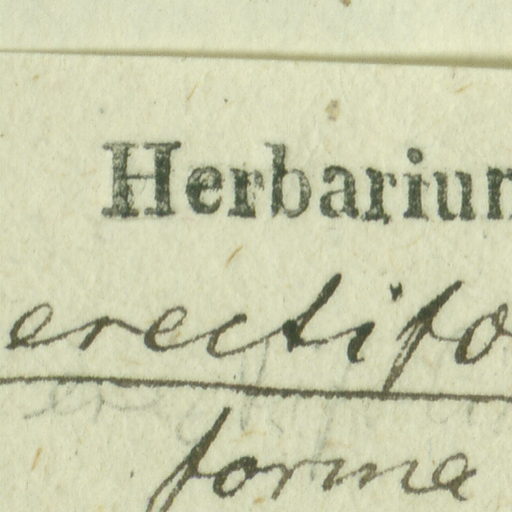 Herbariun
erectifo
forma